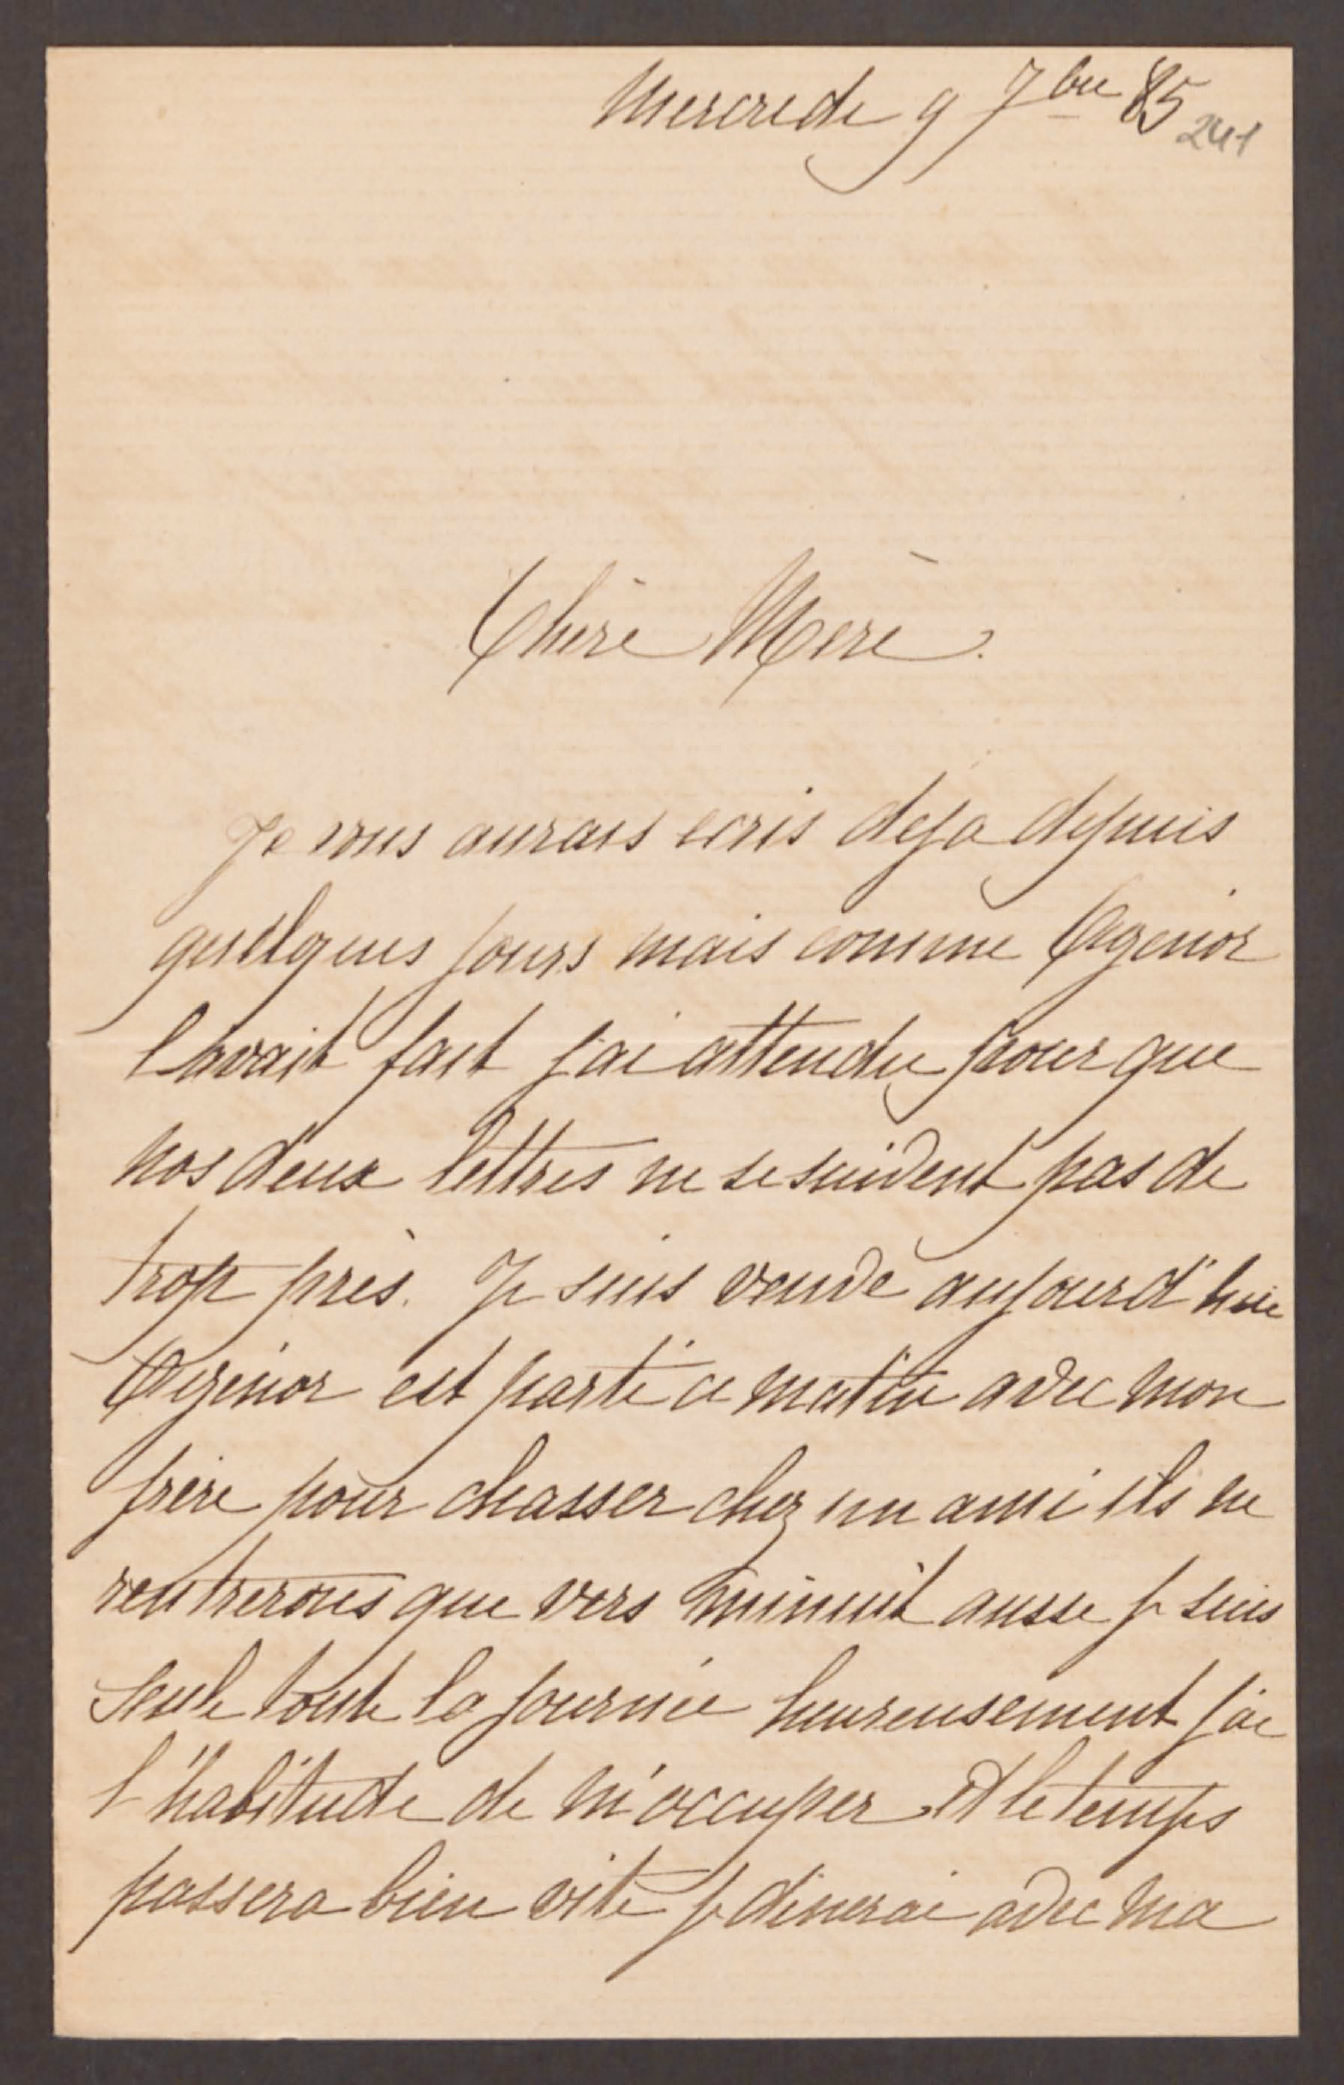 Mercredi 9 7bre 85
241
Chère Mère.
Je vous aurais ecris deja depuis
quelques jours mais comme Agenor
l'avait fait j'ai attendu pour que
nos deux lettres ne se suivent pas de
trop près. Je suis veuve aujourd'hui
Agenor est parti ce matin avec mon
frère pour chasser chez un ami ils ne
rentrerons que vers minuit aussi je suis
seule toute la journée heureusement j'ai
l'habitude de m'occuper et le temps
passera bien vite je dinerai avec ma